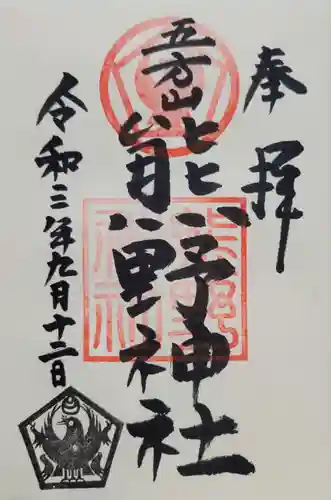 奉拝
五方山
熊野神社
令和三年九月十二日